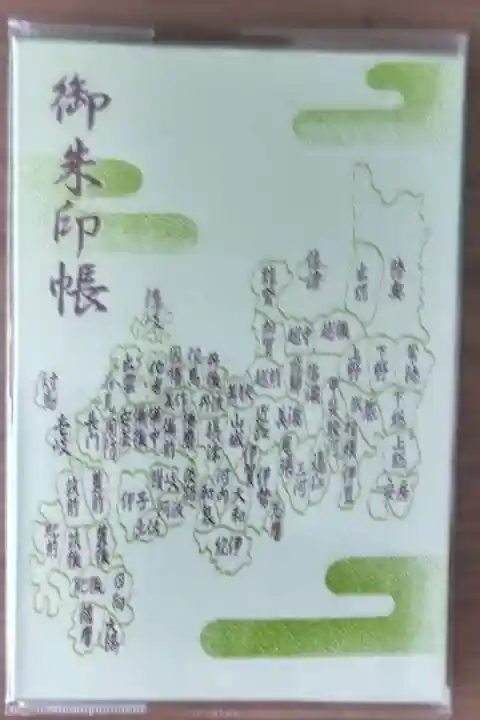 御朱印帳
陸奥
出羽
佐渡
能登
加賀
越中
越後
越前
上野
下野
常陸
武蔵
下総
上総
安房
甲斐
信濃
飛騨
美濃
尾張
三河
遠江
駿河
伊豆
相模
近江
若狭
山城
伊賀
伊勢
志摩
大和
紀伊
河内
和泉
摂津
丹波
丹後
但馬
因幡
播磨
隠岐
伯耆
出雲
備前
備中
備後
長門
伊予
土佐
讃岐
阿波
対馬
壱岐
筑前
豊前
肥前
筑後
豊後
肥後
日向
薩摩
大隅